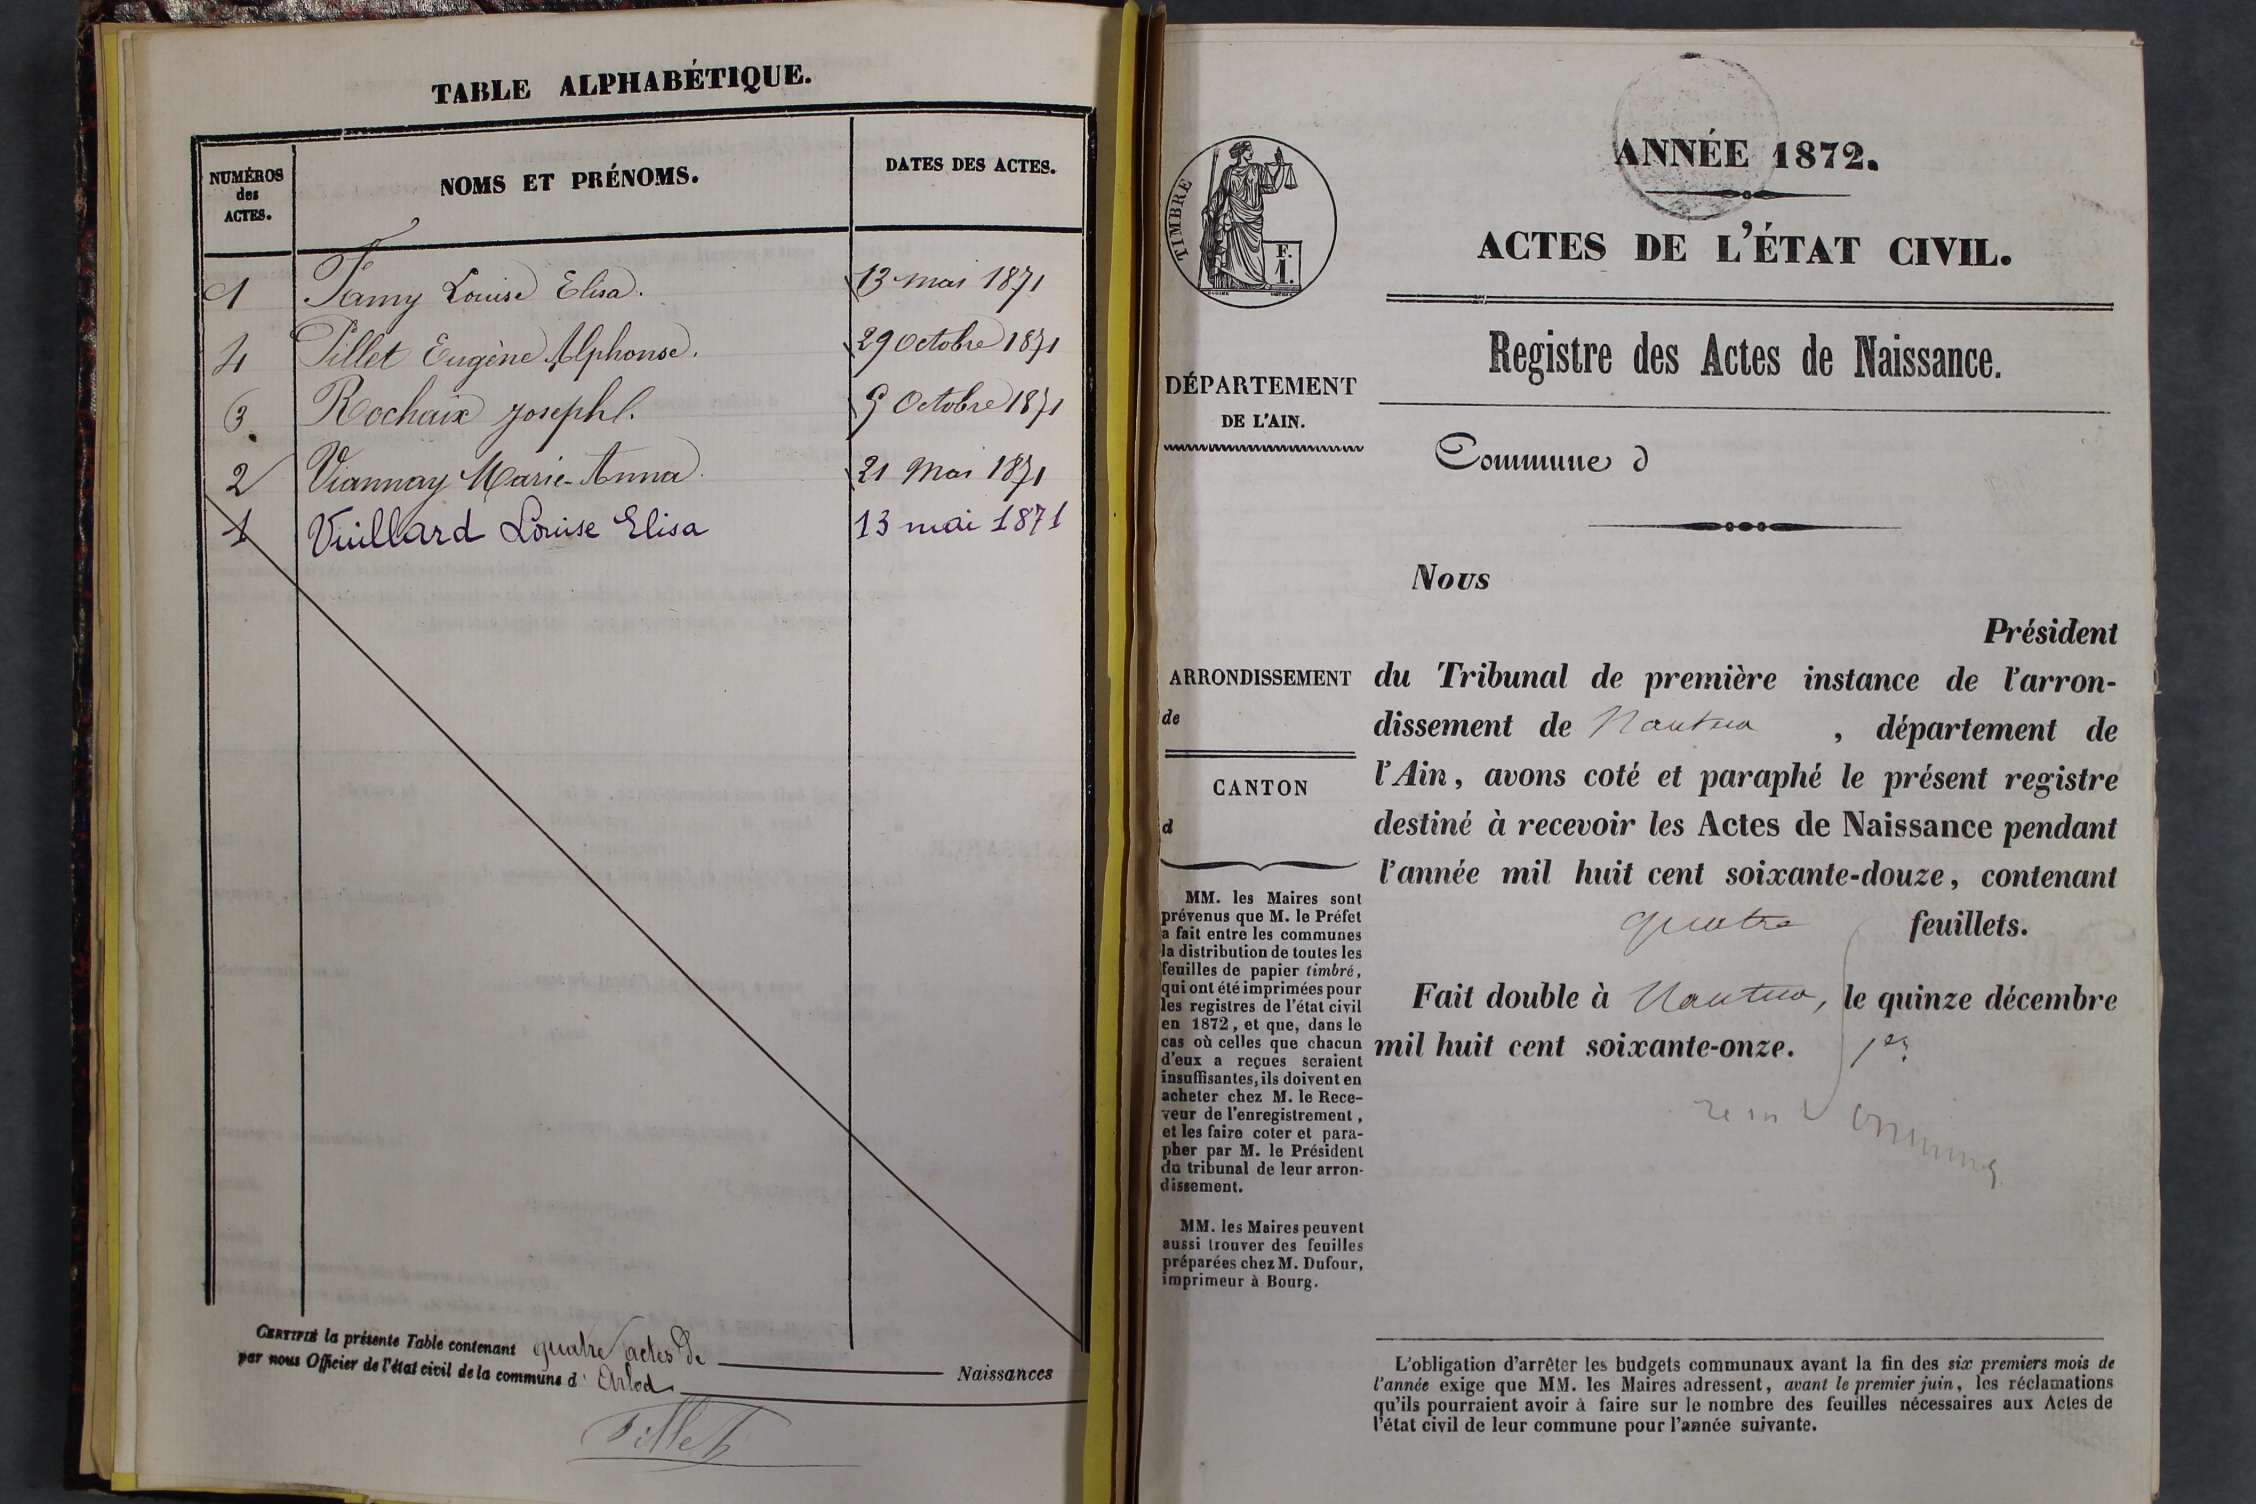 TABLE ALPHABÉTIQUE.
NUMÉROS
des
ACTES.
NOMS ET PRÉNOMS.
DATES DES ACTES.
1 Famy Louise Elisa. 13 mai 1871
4 Pillet Eugène Alphonse. 29 Octobre 1871
3 Rochaix Joseph 9 Octobre 1871
2 Viannay Marie-Anna. 21 Mai 1871
1 Vuillard Louise Elisa 13 mai 1871
CERTIFIÉ la présente Table contenant quatre actes de Naissances
par nous Officier de l'état civil de la commune d' Arlod
Pillet
TIMBRE
F.
1.
DÉPARTEMENT
DE L'AIN.
ARRONDISSEMENT
de
CANTON
d
MM. les Maires sont
prévenus que M. le Préfet
a fait entre les communes
la distribution de toutes les
feuilles de papier timbré,
qui ont été imprimées pour
les registres de l'état civil
en 1872, et que, dans le
cas où celles que chacun
d'eux a reçues seraient
insuffisantes, ils doivent en
acheter chez M. le Rece-
veur de l'enregistrement,
et les faire coter et para-
pher par M. le Président
du tribunal de leur arron-
dissement.
MM. les Maires peuvent
aussi trouver des feuilles
préparées chez M. Dufour,
imprimeur à Bourg.
ANNÉE 1872.
ACTES DE L'ÉTAT CIVIL.
Registre des Actes de Naissance.
Commune d
Nous
Président
du Tribunal de première instance de l'arron-
dissement de Nantua, département de
l'Ain, avons coté et paraphé le présent registre
destiné à recevoir les Actes de Naissance pendant
l'année mil huit cent soixante-douze, contenant
quatre feuillets.
Fait double à Nantua, le quinze décembre
mil huit cent soixante-onze. 1er
L'obligation d'arrêter les budgets communaux avant la fin des six premiers mois de
l'année exige que MM. les Maires adressent, avant le premier juin, les réclamations
qu'ils pourraient avoir à faire sur le nombre des feuilles nécessaires aux Actes de
l'état civil de leur commune pour l'année suivante.